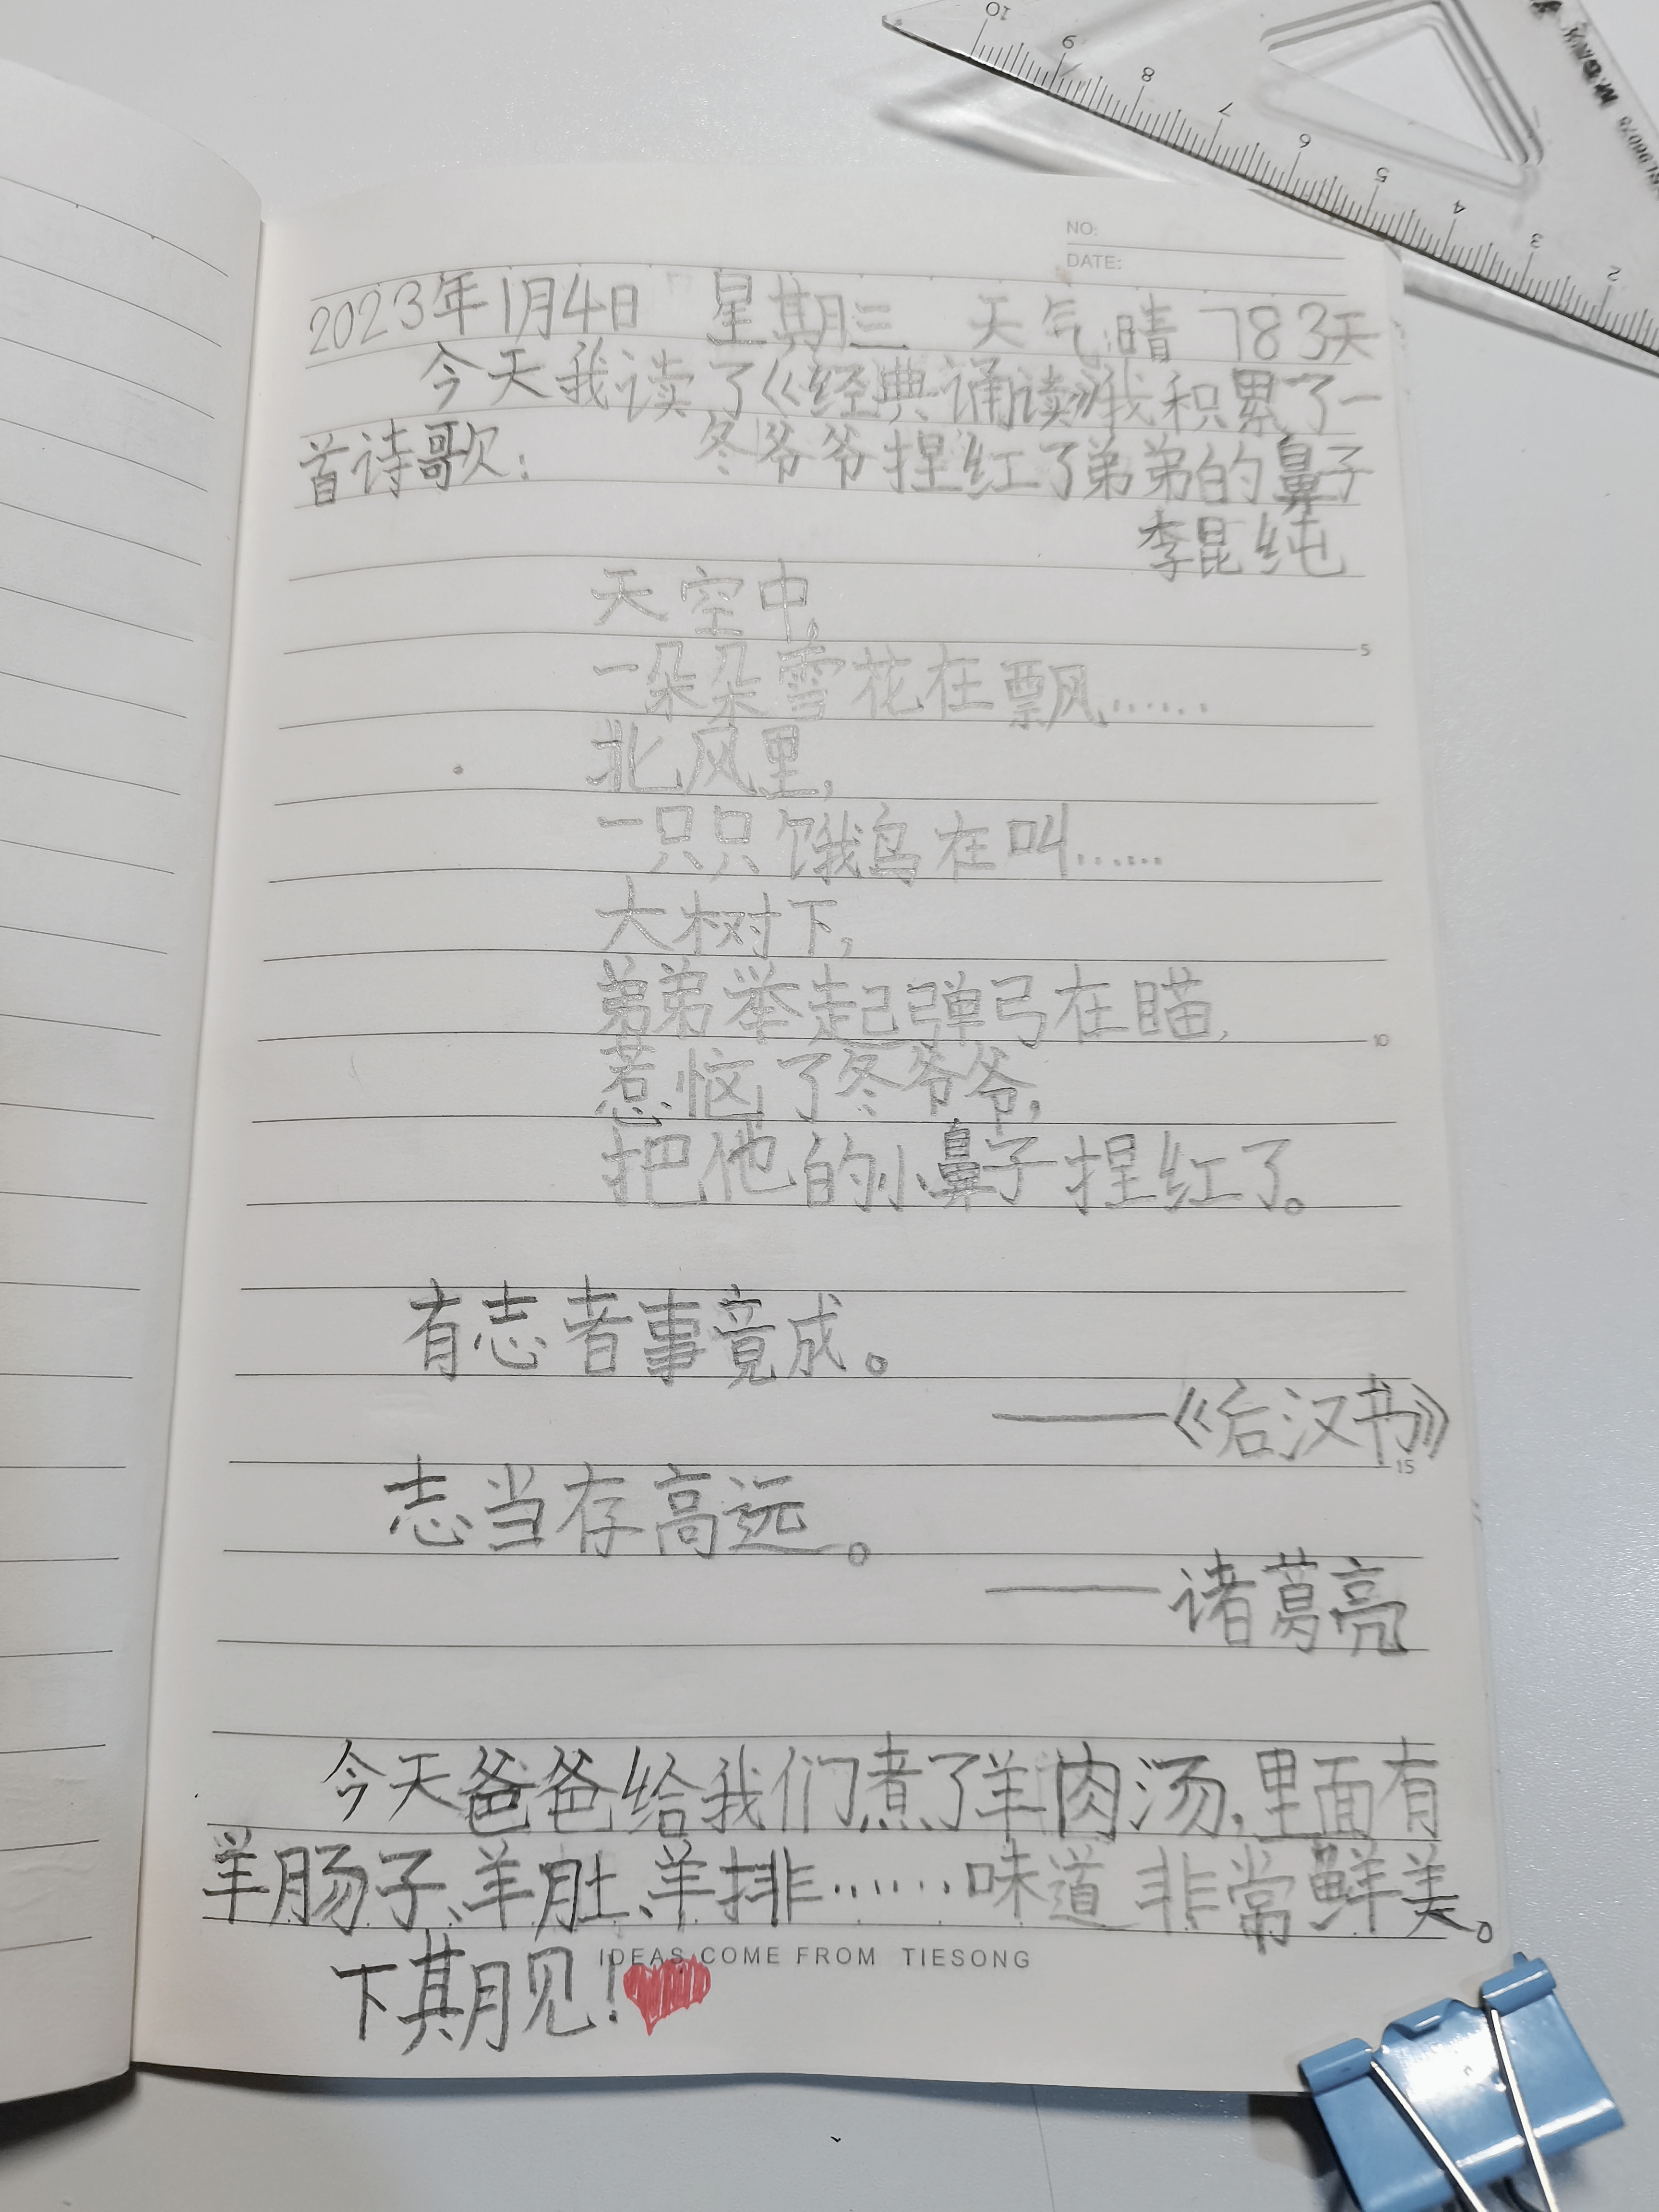 10 9 8 7 6 5 4 3 2
M&G
NO:
DATE:
2023年1月4日 星期三 天气:晴 783天
今天我读了《经典诵读》我积累了一
首诗歌: 冬爷爷捏红了弟弟的鼻子
李昆纯
天空中,
一朵朵雪花在飘……
5
北风里,
一只只饿鸟在叫……
大树下,
弟弟举起弹弓在瞄,
10
惹恼了冬爷爷,
把他的小鼻子捏红了。
有志者事竟成。
——《后汉书》
15
志当存高远。
——诸葛亮
今天爸爸给我们煮了羊肉汤,里面有
羊肠子、羊肚、羊排……味道非常鲜美。
IDEAS COME FROM TIESONG
下期见!